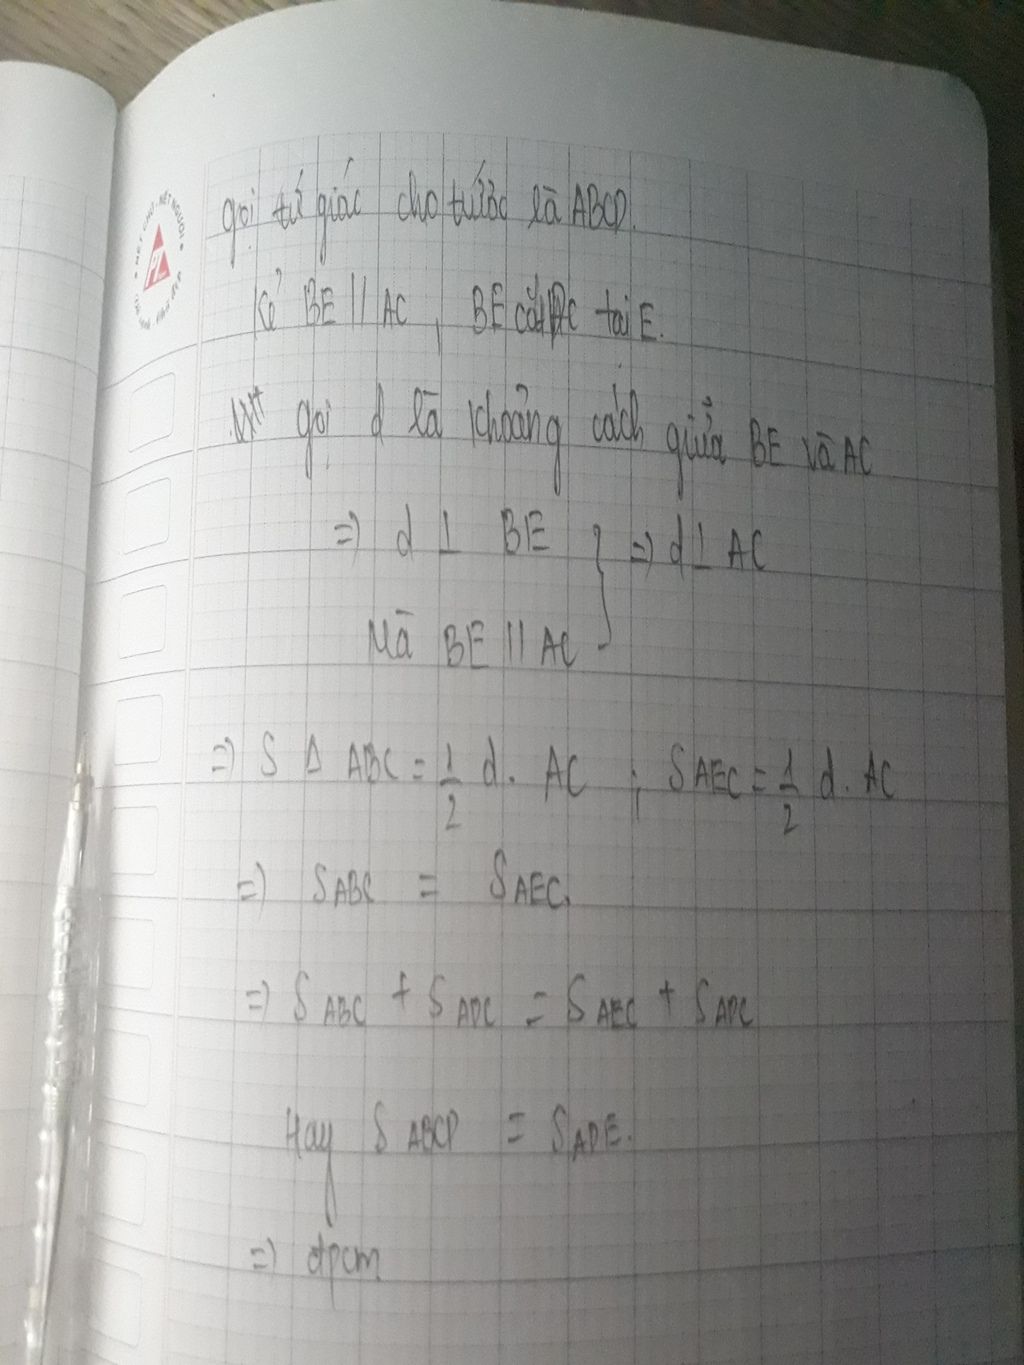 gọi tứ giác cho trước là ABCD.
Kẻ BE // AC , BE cắt DC tại E.
gọi d là khoảng cách giữa BE và AC
=> d ⊥ BE } => d ⊥ AC
Mà BE // AC
=> S Δ ABC = 1/2 d. AC ; S AEC = 1/2 d. AC
=> S ABC = S AEC.
=> S ABC + S ADC = S AEC + S ADC
Hay S ABCD = S ADE.
=> đpcm
NÉT CHỮ - NẾT NGƯỜI